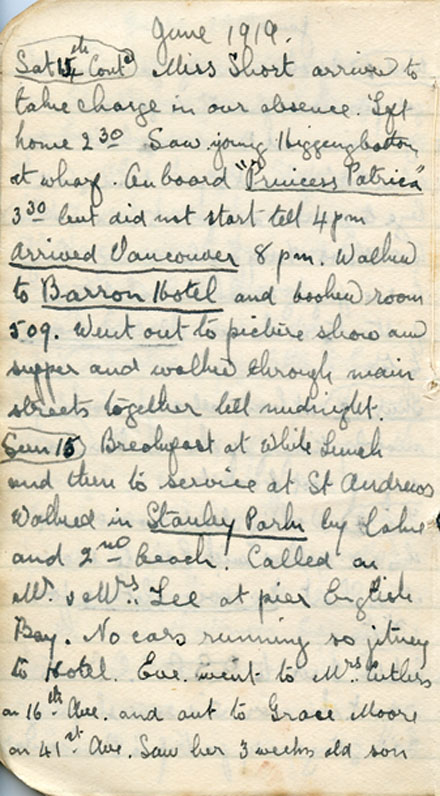 June 1919.
Sat 14th Contd Miss Short arrive to
take charge in our absence. Left
home 2 30 Saw young Higgengbottom
at wharf. On board "Princess Patricia"
3 30 but did not start till 4 pm
Arrived Vancouver 8 pm. Walked
to Barron Hotel and booked room
509. Went out to picture show and
supper and walked through main
streets together till midnight.
Sun 15 Breakfast at White Lunch
and then to service at St Andrews
Walked in Stanley Park by Lake
and 2nd beach. Called on
Mr & Mrs. Lee at pier English
Bay. No cars running so jitney
to Hotel. Eve. went to Mrs.
on 16th Ave. and out to Grace Moore
on 41st Ave. Saw her 3 weeks old son